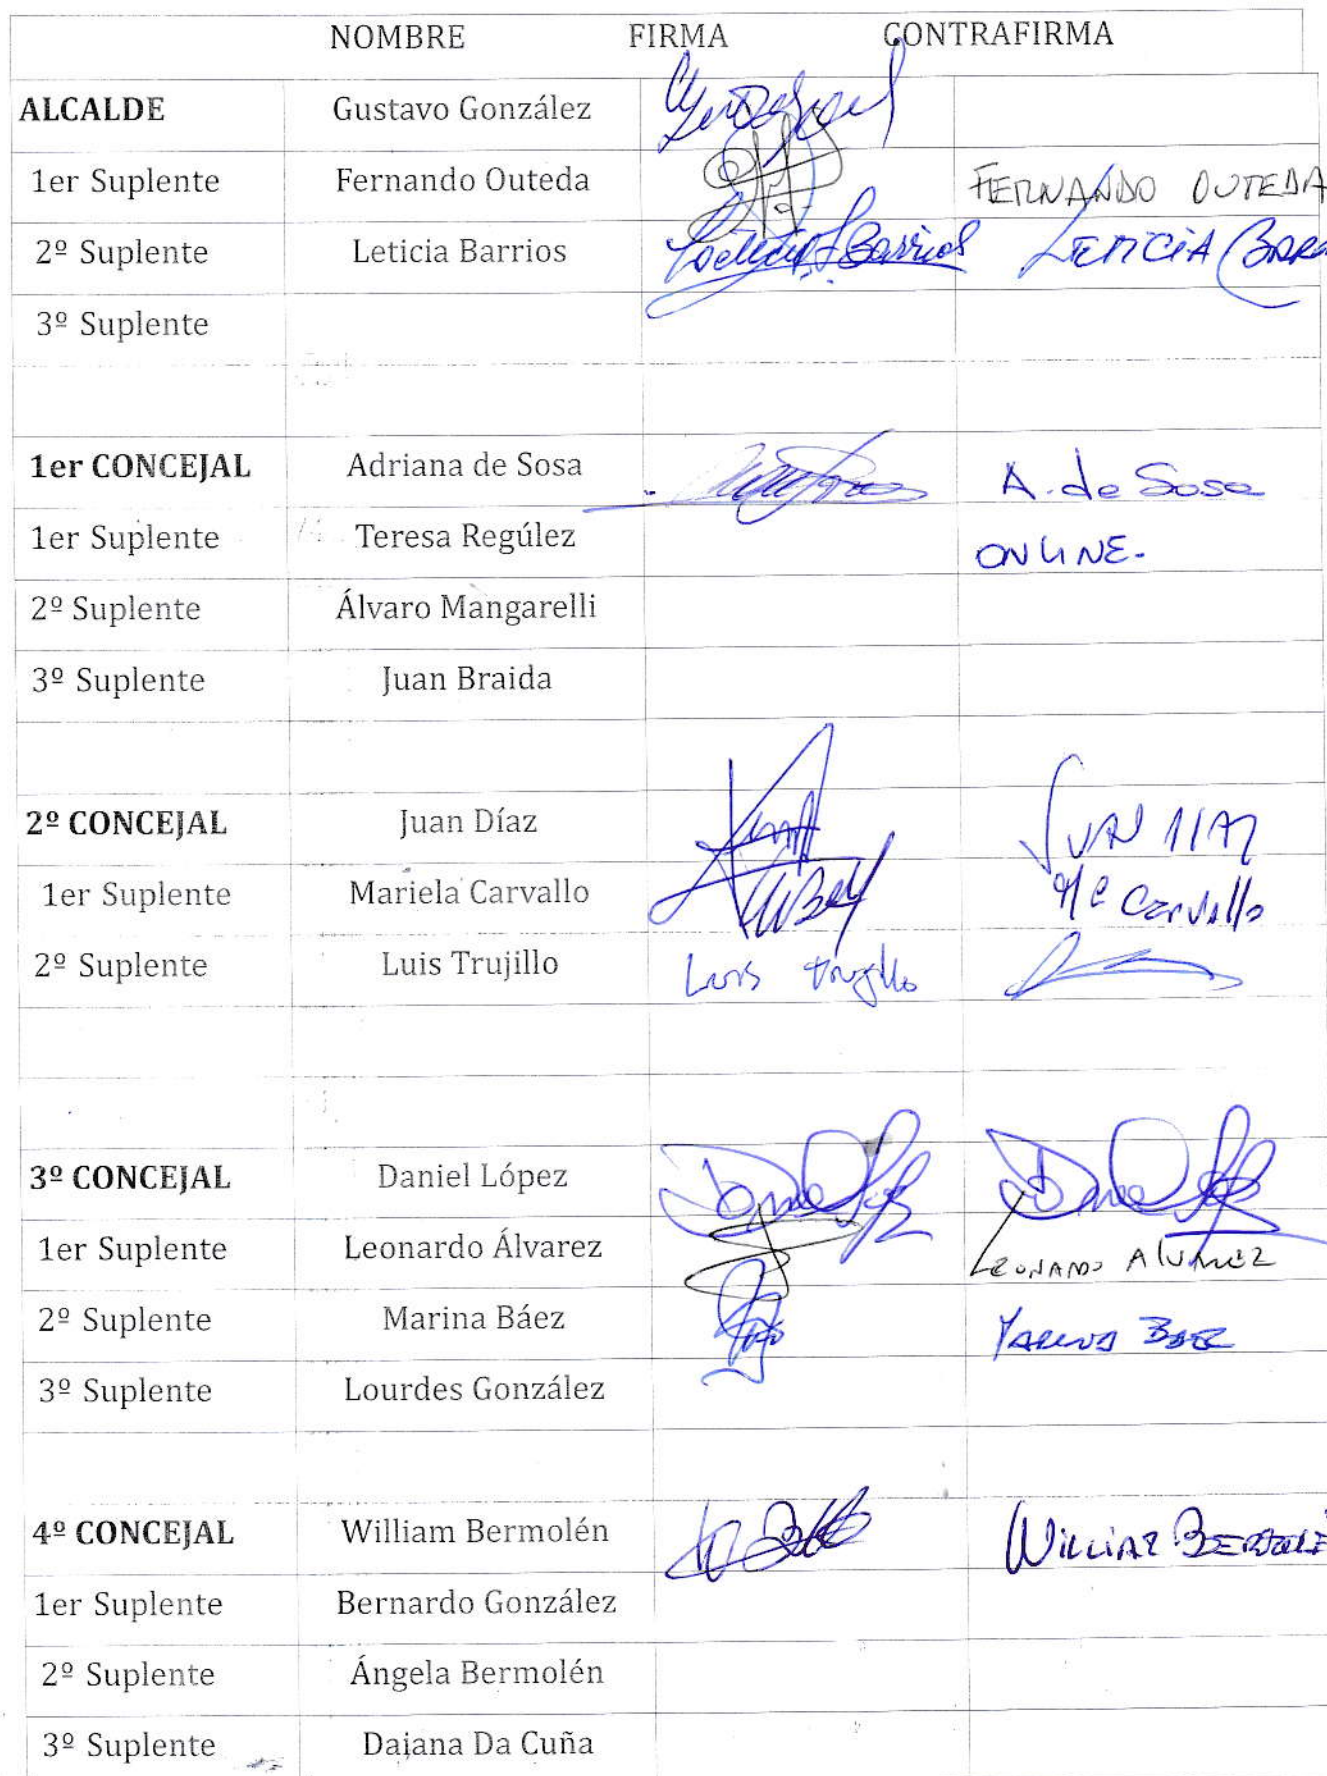 NOMBRE FIRMA CONTRAFIRMA
ALCALDE Gustavo González
1er Suplente Fernando Outeda FERNANDO OUTEDA
2º Suplente Leticia Barrios Leticia Barrios LETICIA
3º Suplente
1er CONCEJAL Adriana de Sosa A. de Sosa
1er Suplente Teresa Regúlez ONLINE.
2º Suplente Álvaro Mangarelli
3º Suplente Juan Braida
2º CONCEJAL Juan Díaz JUAN
1er Suplente Mariela Carvallo Carvallo
2º Suplente Luis Trujillo Luis Trujillo
3º CONCEJAL Daniel López
1er Suplente Leonardo Álvarez LEONARDO ALVAREZ
2º Suplente Marina Báez MARINA BAEZ
3º Suplente Lourdes González
4º CONCEJAL William Bermolén WILLIAM
1er Suplente Bernardo González
2º Suplente Ángela Bermolén
3º Suplente Daiana Da Cuña